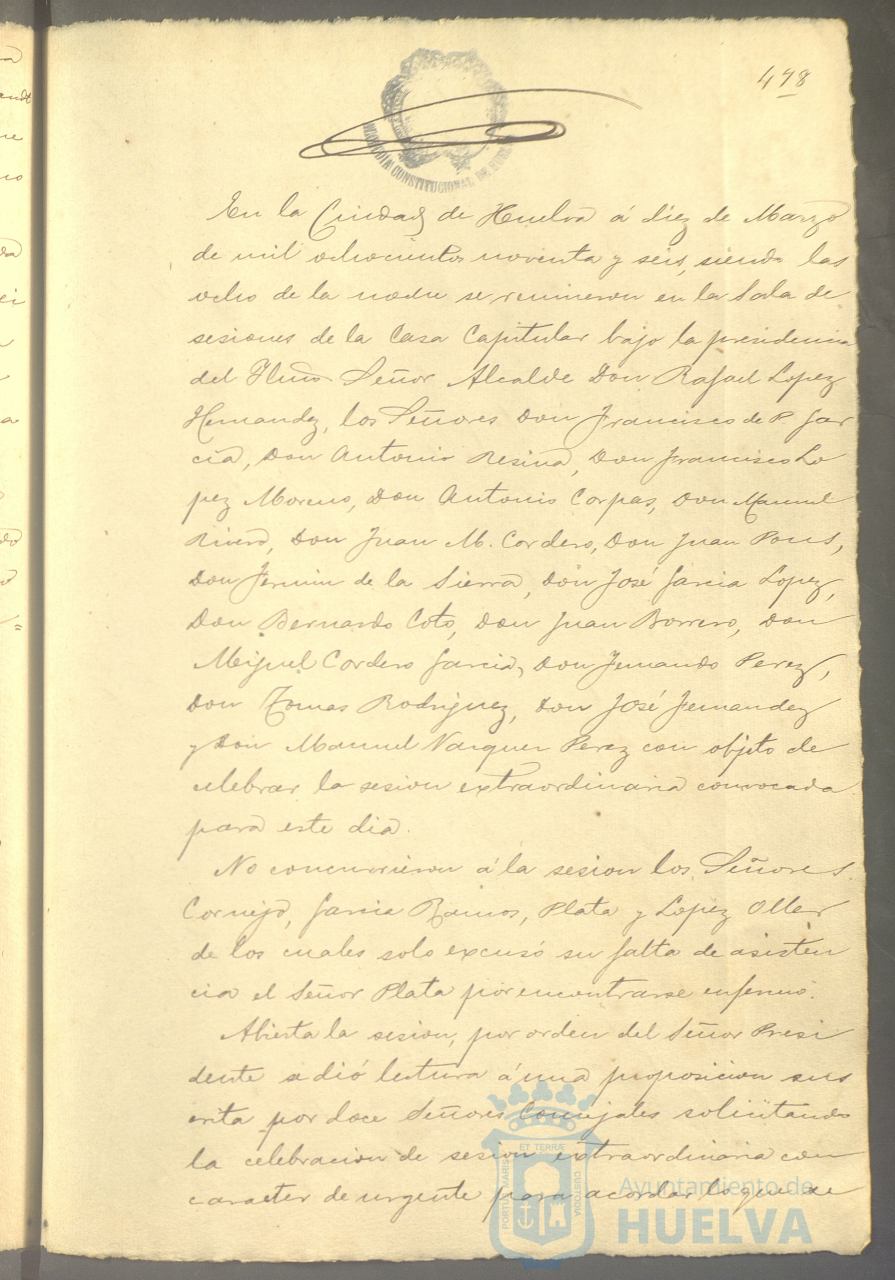 478
ALCALDIA CONSTITUCIONAL DE HUELVA
En la Ciudad de Huelva á diez de Marzo
de mil ochocientos noventa y seis, siendo las
ocho de la noche se reunieron en la Sala de
sesiones de la Casa Capitular bajo la presidencia
del Iltmo Señor Alcalde Don Rafael Lopez
Hernandez, los Señores Don Francisco de P. Gar
cia, Don Antonio Resina, Don Francisco Lo
pez Moreno, Don Antonio Corpas, Don Manuel
Rivero, Don Juan M. Cordero, Don Juan Pons,
Don Fermin de la Sierra, Don José Garcia Lopez,
Don Bernardo Coto, Don Juan Borrero, Don
Miguel Cordero Garcia, Don Fernando Perez,
Don Tomas Rodriguez, Don José Fernandez
y Don Manuel Vazquez Perez con objeto de
celebrar la sesion extraordinaria convocada
para este dia.
No concurrieron á la sesion los Señores
Cornejo, Garcia Ramos, Plata y Lopez Oller
de los cuales solo excusó su falta de asisten
cia el Señor Plata por encontrarse enfermo.
Abierta la sesion, por orden del Señor Presi
dente se dió lectura á una proposicion sus
crita por doce Señores Concejales solicitando
la celebracion de sesion extraordinaria con
caracter de urgente para acordar lo que de
PORTUS MARIS ET TERRÆ CUSTODIA
Ayuntamiento de
HUELVA